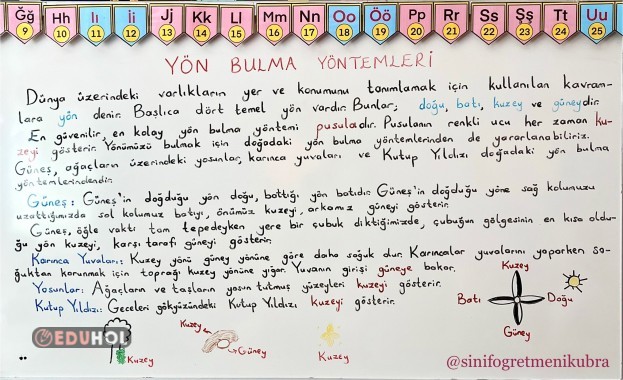 Ğğ Hh Iı İi Jj Kk Ll Mm Nn Oo Öö Pp Rr Ss Şş Tt Uu
9 10 11 12 13 14 15 16 17 18 19 20 21 22 23 24 25
YÖN BULMA YÖNTEMLERİ
Dünya üzerindeki varlıkların yer ve konumunu tanımlamak için kullanılan kavram-
lara yön denir. Başlıca dört temel yön vardır. Bunlar; doğu, batı, kuzey ve güneydir.
En güvenilir, en kolay yön bulma yöntemi pusuladır. Pusulanın renkli ucu her zaman ku-
zeyi gösterir. Yönümüzü bulmak için doğadaki yön bulma yöntemlerinden de yararlanabiliriz.
Güneş, ağaçların üzerindeki yosunlar, karınca yuvaları ve Kutup Yıldızı doğadaki yön bulma
yöntemlerindendir.
Güneş: Güneş'in doğduğu yön doğu, battığı yön batıdır. Güneş'in doğduğu yöne sağ kolumuzu
uzattığımızda sol kolumuz batıyı, önümüz kuzeyi, arkamız güneyi gösterir.
Güneş, öğle vakti tam tepedeyken yere bir çubuk diktiğimizde, çubuğun gölgesinin en kısa oldu-
ğu yön kuzeyi, karşı tarafı güneyi gösterir.
Karınca Yuvaları: Kuzey yönü güney yönüne göre daha soğuk dur. Karıncalar yuvalarını yaparken so-
ğuktan korunmak için toprağı kuzey yönüne yığar. Yuvanın girişi güneye bakar.
Yosunlar: Ağaçların ve taşların yosun tutmuş yüzeyleri kuzeyi gösterir.
Kutup Yıldızı: Geceleri gökyüzündeki Kutup Yıldızı kuzeyi gösterir.
Kuzey
Batı Doğu
Güney
EDUHOL
Kuzey
Kuzey
Güney
Kuzey
@sinifogretmenikubra